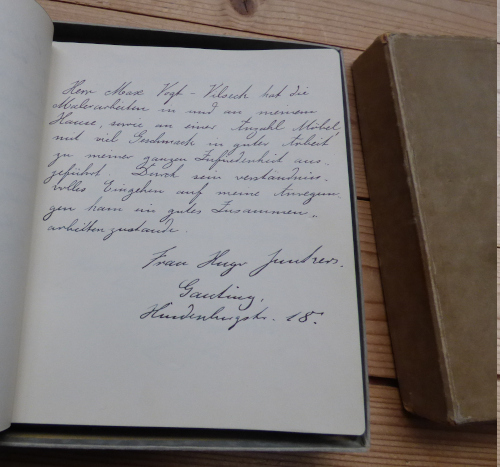 Herr Max Vogt - Vilseck hat die
Malerarbeiten in und an meinem
Hause, sowie an einer Anzahl Möbel,
mit viel Geschmack in guter Arbeit
zu meiner ganzen Zufriedenheit aus-
geführt. Durch sein verständnis-
volles Eingehen auf meine Anregun-
gen kam ein gutes Zusammen-
arbeiten zustande.
Frau Hugo Junkers.
Gauting,
Hindenburgstr. 18.